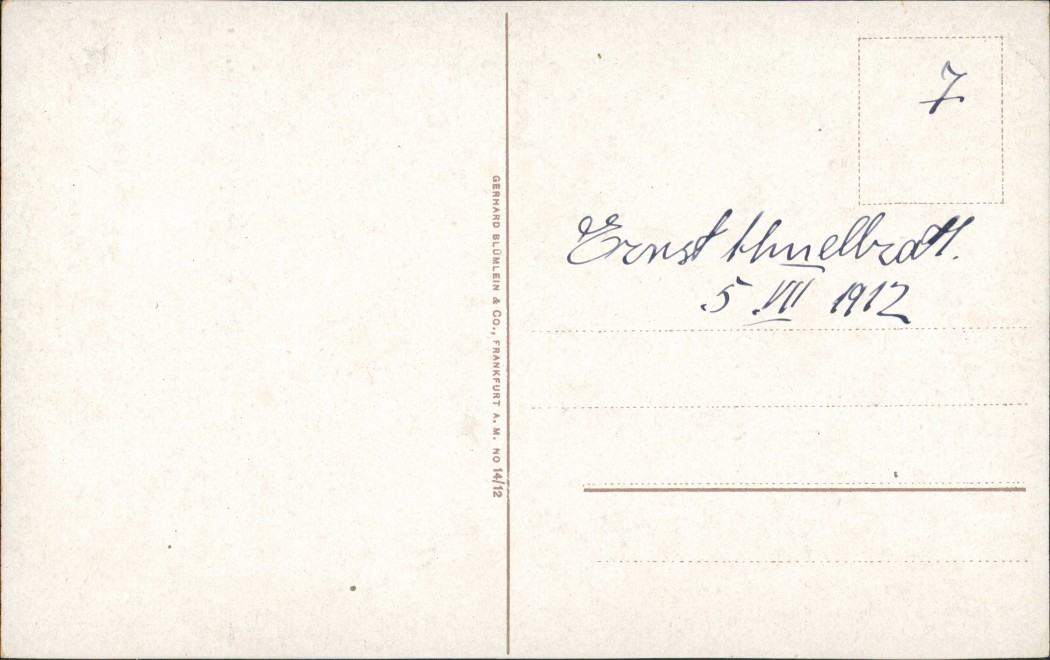 GERHARD BLÜMLEIN & CO., FRANKFURT A. M. NO 14/12
7
Ernst
5 VII 1912